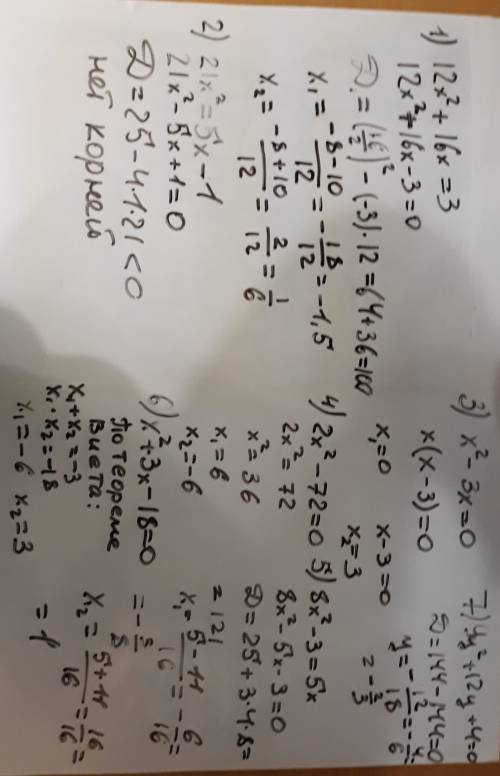 1) 12x² + 16x = 3
12x² + 16x - 3 = 0
D₁ = (16/2)² - (-3)·12 = 64 + 36 = 100
x₁ = (-8-10)/12 = -18/12 = -1,5
x₂ = (-8+10)/12 = 2/12 = 1/6
2) 21x² = 5x - 1
21x² - 5x + 1 = 0
D = 25 - 4·1·21 < 0
нет корней
3) x² - 3x = 0
x(x-3) = 0
x₁ = 0 x - 3 = 0
x₂ = 3
4) 2x² - 72 = 0
2x² = 72
x² = 36
x₁ = 6
x₂ = -6
5) 8x² - 3 = 5x
8x² - 5x - 3 = 0
D = 25 + 3·4·8 =
= 121
x₁ = (5-11)/16 = -6/16 =
= -3/8
x₂ = (5+11)/16 = 16/16 =
= 1
6) x² + 3x - 18 = 0
По теореме
Виета:
x₁ + x₂ = -3
x₁ · x₂ = -18
x₁ = -6 x₂ = 3
7) 9y² + 12y + 4 = 0
D = 144 - 144 = 0
y = -12/18 = -4/6
= -2/3